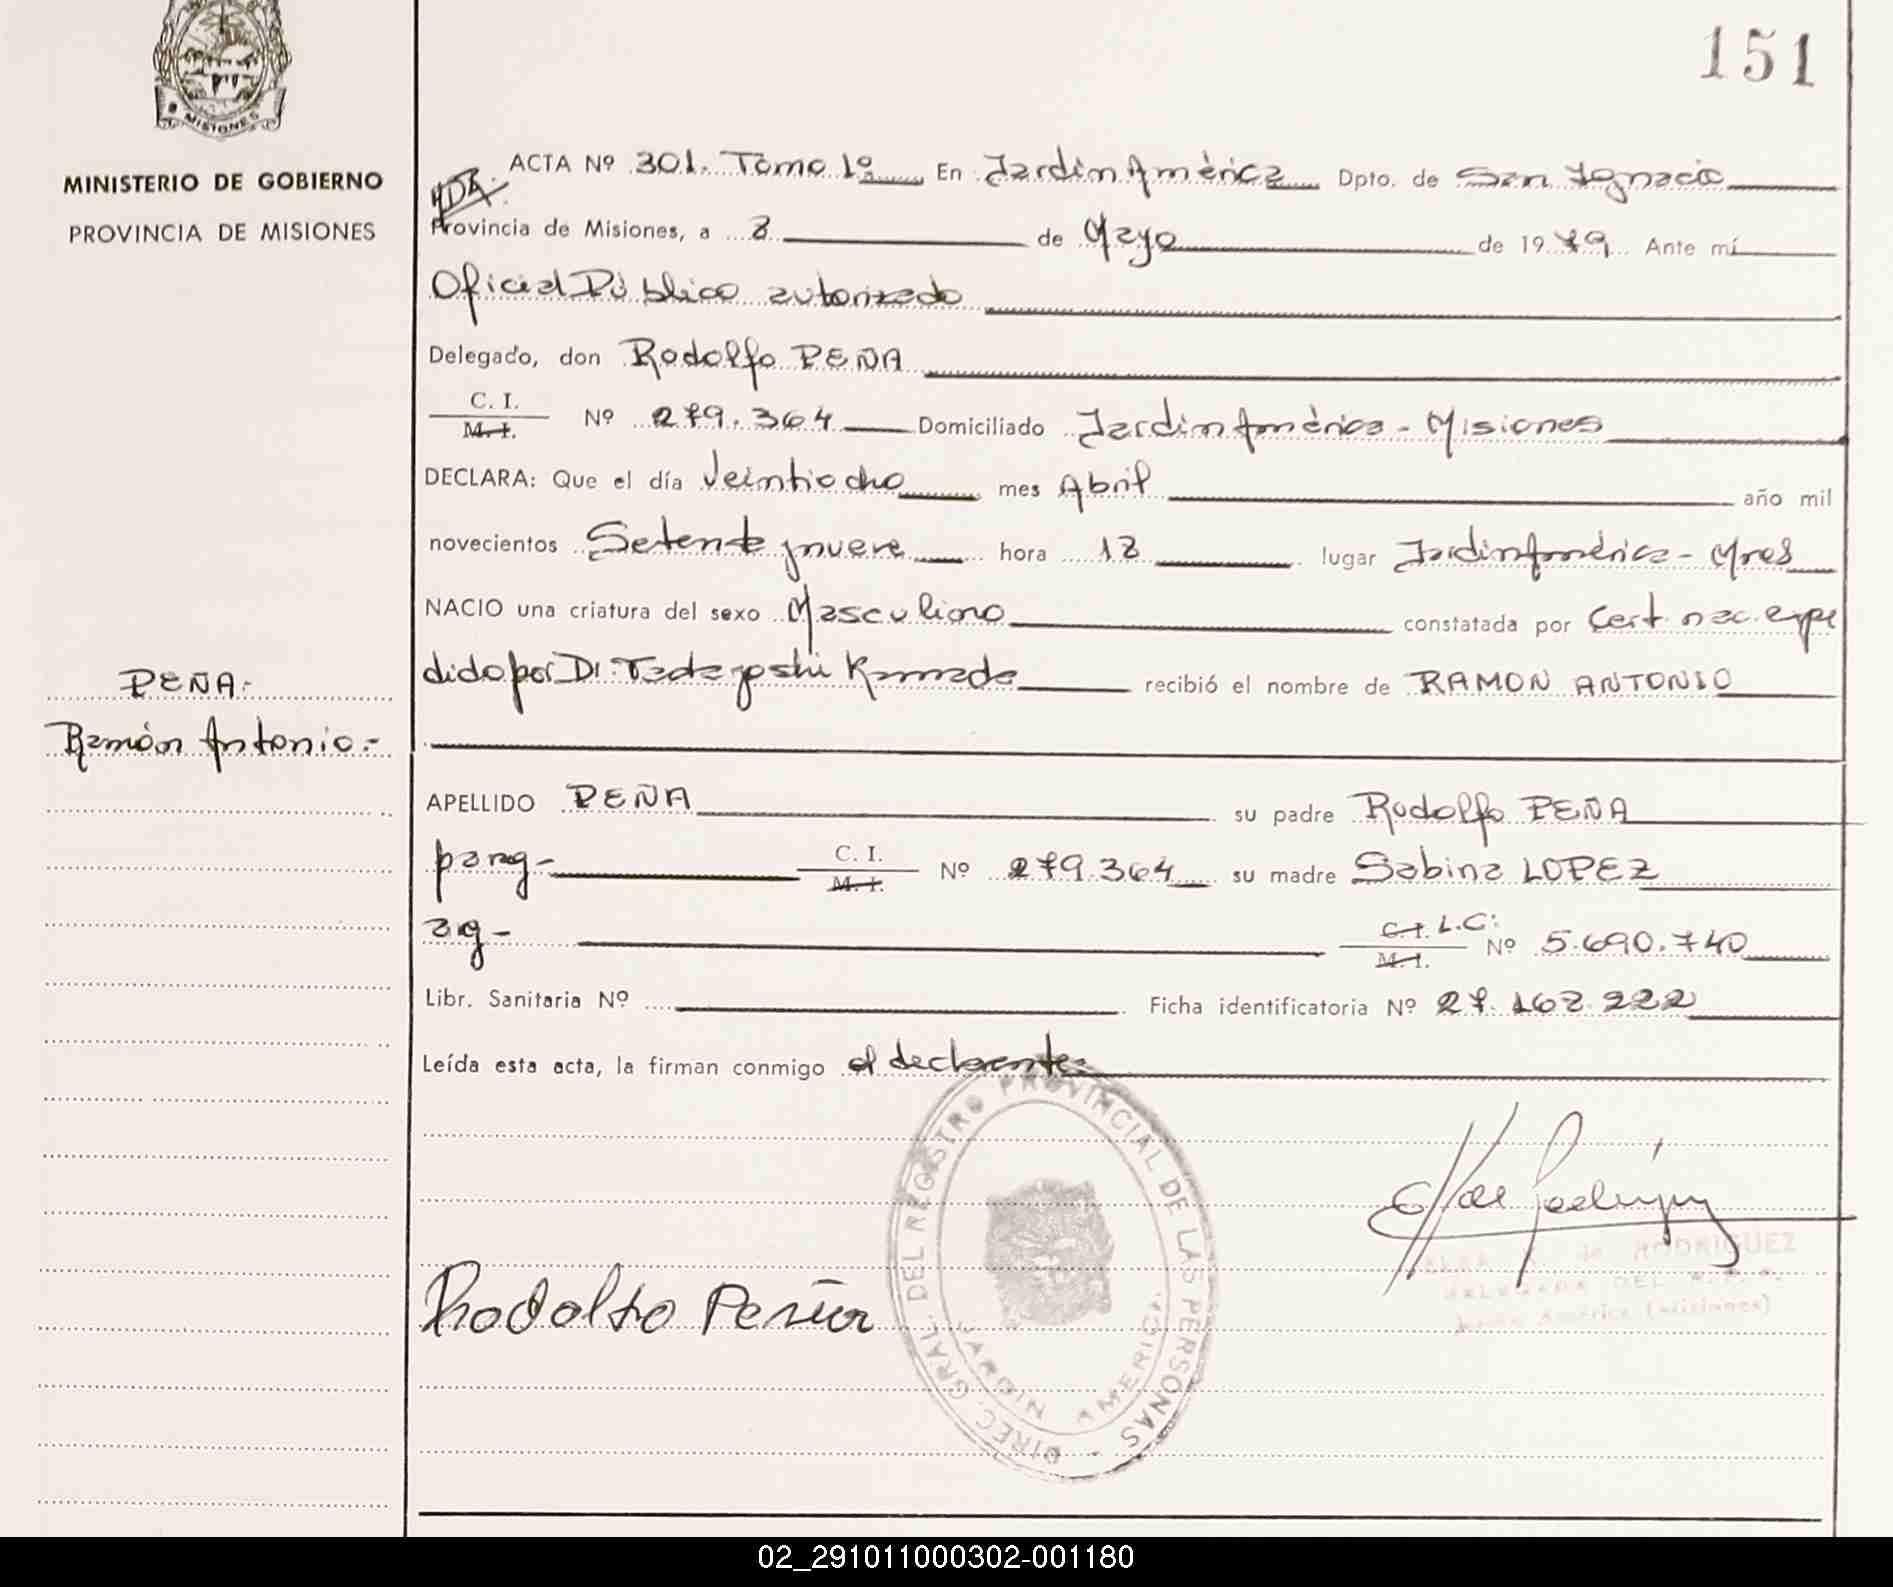 151
MISIONES
MINISTERIO DE GOBIERNO
PROVINCIA DE MISIONES
ACTA Nº 301. Tomo 1º En Jardín América Dpto. de San Ignacio
Provincia de Misiones, a 8 de Mayo de 1979 Ante mí
Oficial Público autorizado
Delegado, don Rodolfo PEÑA
C. I.
M. I.
Nº 279.364 Domiciliado Jardín América - Misiones
DECLARA: Que el día veintiocho mes Abril año mil
novecientos Setenta y nueve hora 12 lugar Jardín América - Mnes
NACIO una criatura del sexo Masculino constatada por Cert. nac. expe
dido por Dr. Tadayoshi Kamada recibió el nombre de RAMON ANTONIO
PEÑA.-
Ramón Antonio.-
APELLIDO PEÑA su padre Rodolfo PEÑA
parag- C. I. Nº 279.364 su madre Sabina LOPEZ
M. I.
arg- C. I. L.C: Nº 5.690.740
M. I.
Libr. Sanitaria Nº Ficha identificatoria Nº 27.162.222
Leída esta acta, la firman conmigo el declarante.
DIREC. GRAL. DEL REGISTRO PROVINCIAL DE LAS PERSONAS -
JARDIN AMERICA
Rodolfo Peña
de RODRIGUEZ
DELEGADA DEL
Jardín América (Misiones)
02_291011000302-001180